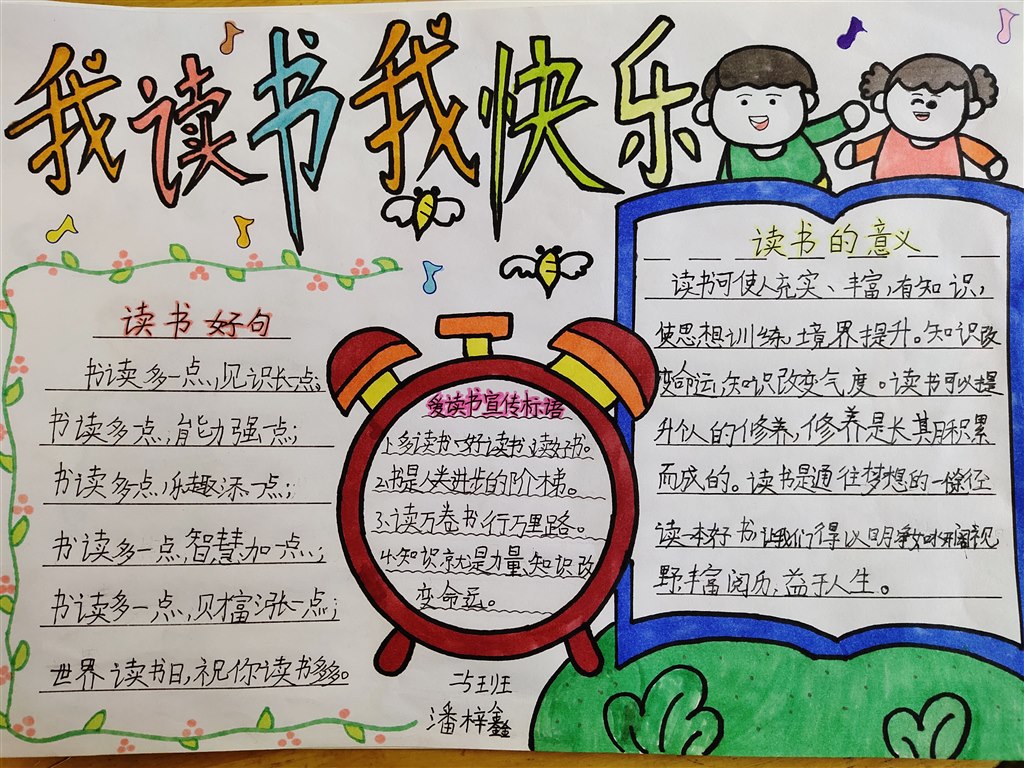 我读书我快乐
读书好句
书读多一点,见识长一点;
书读多一点,能力强一点;
书读多一点,乐趣添一点;
书读多一点,智慧加一点;
书读多一点,财富涨一点;
世界读书日,祝你读书多多。
爱读书宣传标语
1、多读书、好读书、读好书。
2、书是人类进步的阶梯。
3、读万卷书,行万里路。
4、知识就是力量,知识改
变命运。
二五班
潘梓鑫
读书的意义
读书可使人充实、丰富,有知识,
使思想训练,境界提升。知识改
变命运,知识改变气度。读书可以提
升个人的修养,修养是长其月积累
而成的。读书是通往梦想的一條径
读一本好书让我们得以明
野,丰富阅历,益于人生。